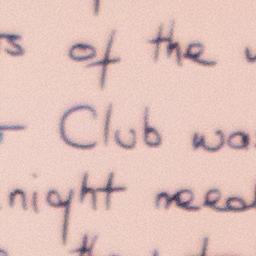 of the
Club was
night need